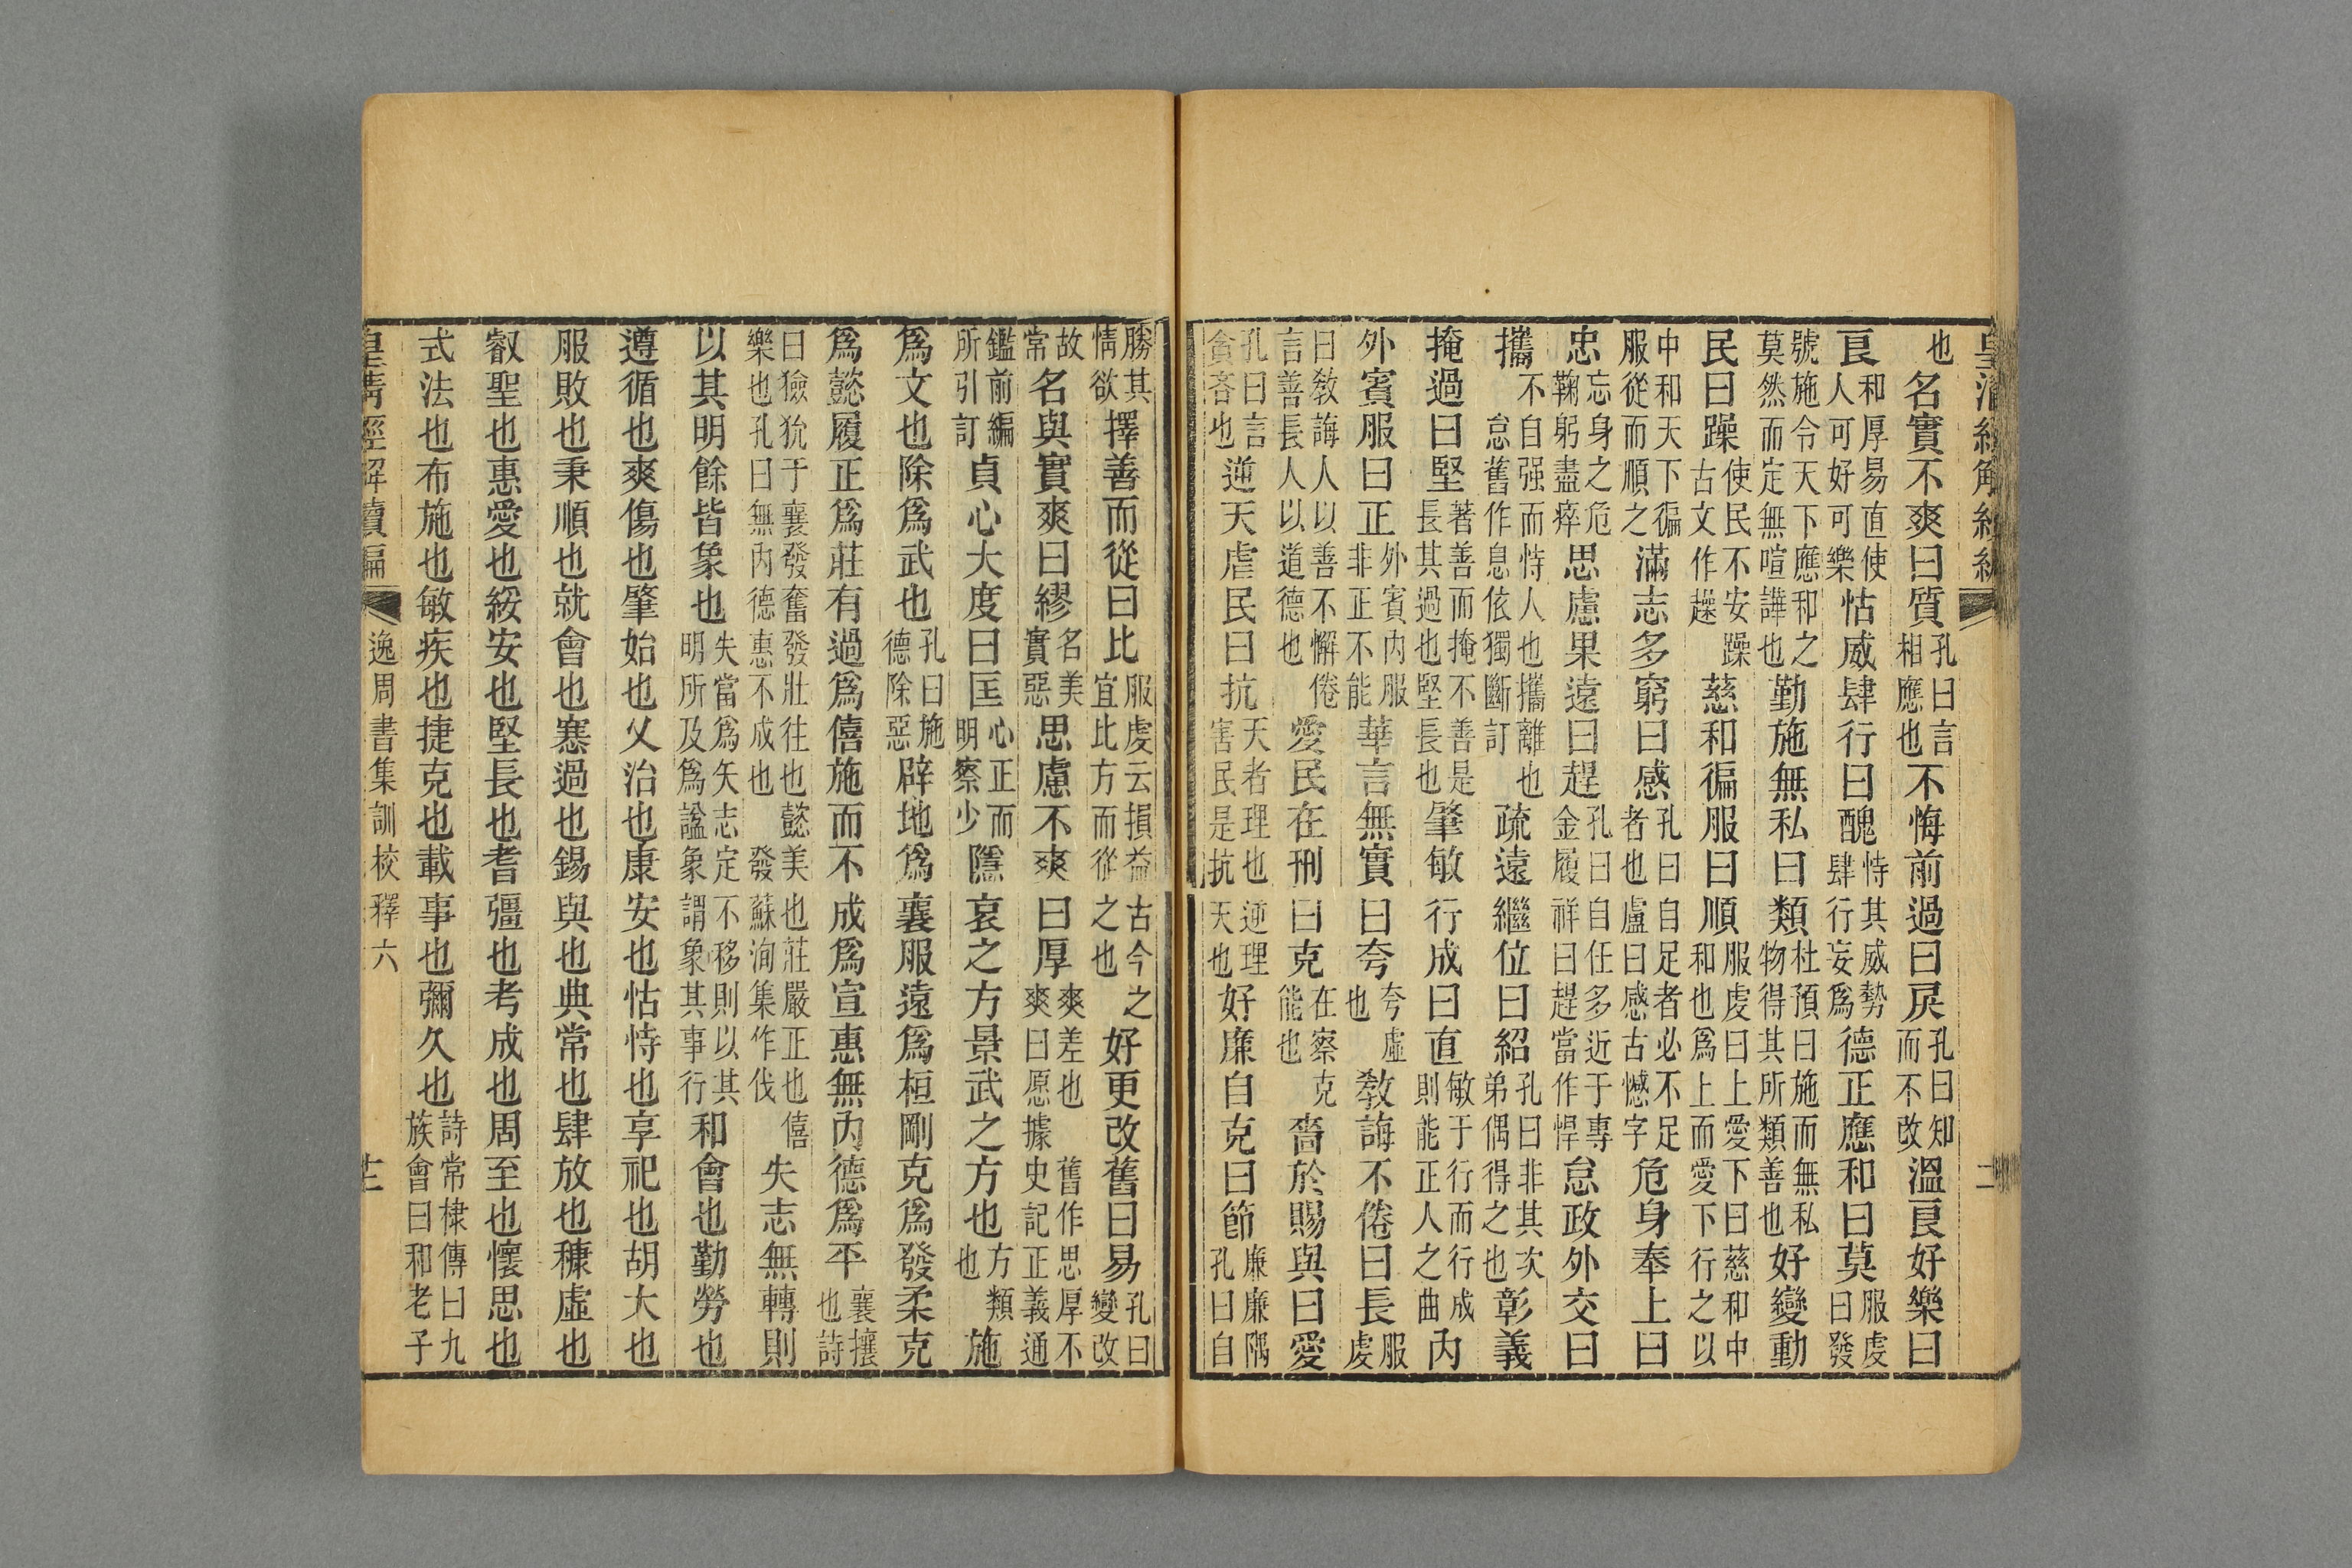 皇清經解續編
也 名實不爽曰質 孔曰言相應也 不悔前過曰戾 孔曰知而不改 溫良好樂曰
良 和厚易直使人可好可樂 怙威肆行曰醜 恃其威勢肆行妄爲 德正應和曰莫 服虔曰發
號施令天下應和之莫然而定無喧譁也 勤施無私曰類 杜預曰施而無私物得其所類善也 好變動
民曰躁 使民不安躁古文作趮 慈和徧服曰順 服虔曰上愛下曰慈和中和也爲上而愛下行之以
中和天下徧服從而順之 滿志多窮曰感 孔曰自足者必不足者也盧曰感古憾字 危身奉上曰
忠 忘身之危鞠躬盡瘁 思慮果遠曰趕 孔曰自任多近于專金履祥曰趕當作悍 怠政外交曰
攜 不自强而恃人也攜離也怠舊作息依獨斷訂 疏遠繼位曰紹 孔曰非其次弟偶得之也 彰義
掩過曰堅 著善而掩不善是長其過也堅長也 肇敏行成曰直 敏于行而行成則能正人之曲 內
外賓服曰正 外賓內服非正不能 華言無實曰夸 夸虛也 敎誨不倦曰長 服虔
曰敎誨人以善不懈倦言善長人以道德也 愛民在刑曰克 在察克能也 嗇於賜與曰愛
孔曰言貪吝也 逆天虐民曰抗 天者理也逆理害民是抗天也 好廉自克曰節 廉廉隅孔曰自
勝其情欲 擇善而從曰比 服虔云損益古今之宜比方而從之也 好更改舊曰易 孔曰變改
故常 名與實爽曰繆 名美實惡 思慮不爽曰厚 爽差也舊作思厚不爽曰愿據史記正義通
鑑前編所引訂 貞心大度曰匡 心正而明察少 隱哀之方景武之方也 方類也 施
爲文也除爲武也 孔曰施德除惡 辟地爲襄服遠爲桓剛克爲發柔克
爲懿履正爲莊有過爲僖施而不成爲宣惠無內德爲平 襄攘也詩
曰獫狁于襄發奮發壯往也懿美也莊嚴正也僖樂也孔曰無內德惠不成也 發蘇洵集作伐 失志無轉則
以其明餘皆象也 失當爲矢志定不移則以其明所及爲諡象謂象其事行 和會也勤勞也
遵循也爽傷也肇始也乂治也康安也怙恃也享祀也胡大也
服敗也秉順也就會也寋過也錫與也典常也肆放也穅虛也
叡聖也惠愛也綏安也堅長也耆彊也考成也周至也懷思也
式法也布施也敏疾也捷克也載事也彌久也 詩常棣傳曰九族會曰和老子
皇清經解續編 逸周書集訓校釋六